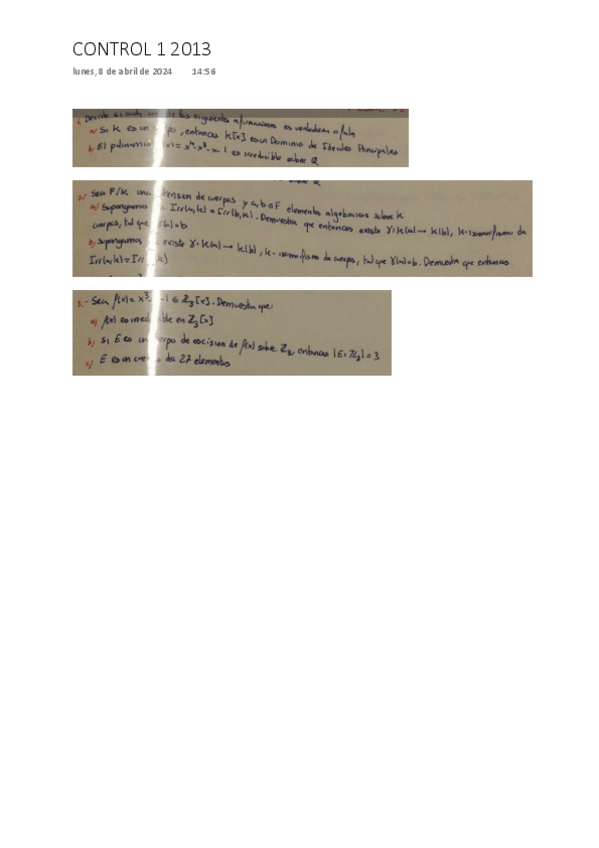 CONTROL 1 2013
lunes, 8 de abril de 2024 14:56
Decide si cada una de las siguientes afirmaciones es verdadera o falsa
a) Si K es un cuerpo, entonces K[x] es un Dominio de Ideales Principales
b) El polinomio f(x) = x⁴-x³-x-1 es irreducible sobre Q
2.- Sea F/K una extensión de cuerpos y a, b ∈ F elementos algebraicos sobre K
a) Supongamos Irr(a,K) = Irr(b,K). Demuestra que entonces existe γ: K(a) → K(b), K-isomorfismo de
cuerpos, tal que γ(a)=b
b) Supongamos existe γ: K(a) → K(b), K-isomorfismo de cuerpo, tal que γ(a)=b. Demuestra que entonces
Irr(a,K) = Irr(b,K)
3.- Sea f(x) = x³- -1 ∈ Z₃[x]. Demuestra que:
a) f(x) es irreducible en Z₃[x]
b) Si E es un cuerpo de escisión de f(x) sobre Z₃, entonces |E:Z₃| = 3
c) E es un cuerpo de 27 elementos